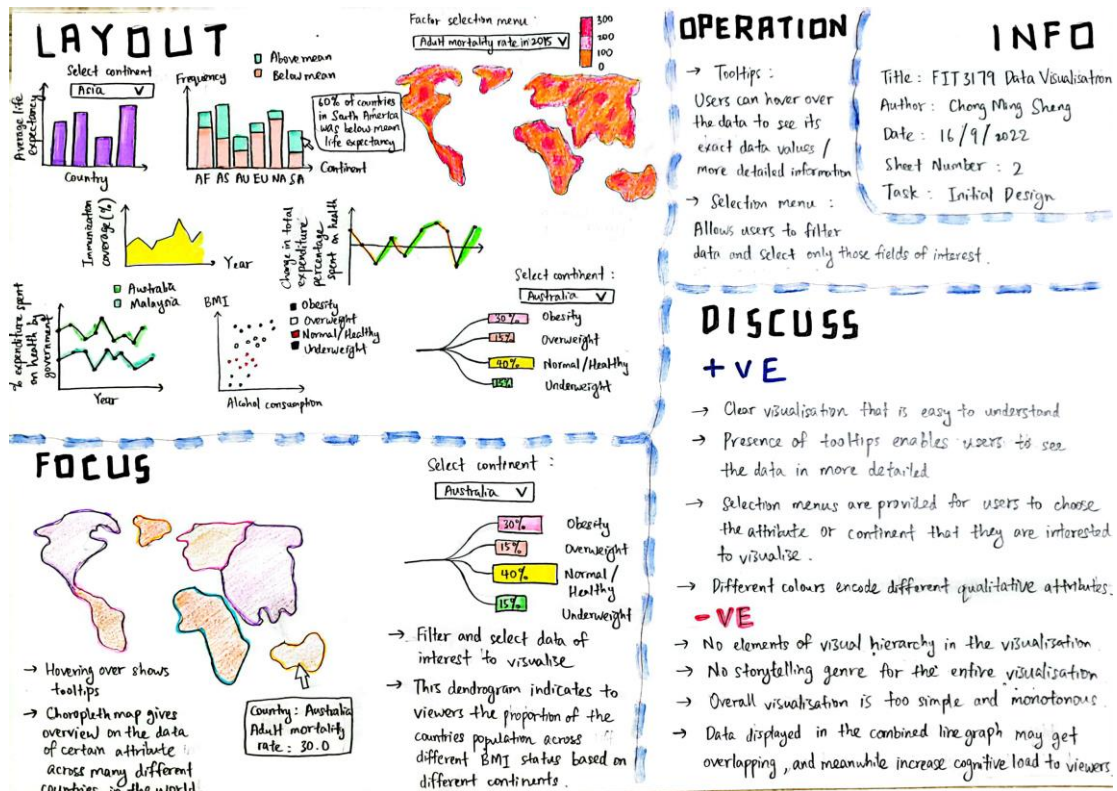 LAYOUT
Select continent
Asia V
Average life
expectancy
Country
Frequency
Above mean
Below mean
60% of countries
in South America
was below mean
life expectancy
Continent
AF AS AU EU NA SA
Factor selection menu :
Adult mortality rate in 2015 V
300
200
100
0
Immunization
coverage (%)
Year
Change in total
expenditure
percentage
spent on health
Australia
Malaysia
% expenditure spent
on health by
government
Year
BMI
Obesity
Overweight
Normal/Healthy
Underweight
Alcohol consumption
Select continent :
Australia V
30% Obesity
15% Overweight
40% Normal/Healthy
15% Underweight
OPERATION
→ Tooltips :
Users can hover over
the data to see its
exact data values /
more detailed information
→ Selection menu :
Allows users to filter
data and select only those fields of interest.
INFO
Title : FIT3179 Data Visualisation
Author : Chong Ming Sheng
Date : 16/9/2022
Sheet Number : 2
Task : Initial Design
FOCUS
→ Hovering over shows
tooltips
→ Choropleth map gives
overview on the data
of certain attribute
across many different
countries in the world
Country : Australia
Adult mortality
rate : 30.0
Select continent :
Australia V
30% Obesity
15% Overweight
40% Normal /
Healthy
15% Underweight
→ Filter and select data of
interest to visualise
→ This dendrogram indicates to
viewers the proportion of the
countries population across
different BMI status based on
different continents.
DISCUSS
+VE
→ Clear visualisation that is easy to understand
→ Presence of tooltips enables users to see
the data in more detailed
→ Selection menus are provided for users to choose
the attribute or continent that they are interested
to visualise.
→ Different colours encode different qualitative attributes.
-VE
→ No elements of visual hierarchy in the visualisation
→ No storytelling genre for the entire visualisation
→ Overall visualisation is too simple and monotonous.
→ Data displayed in the combined line graph may get
overlapping, and meanwhile increase cognitive load to viewers.